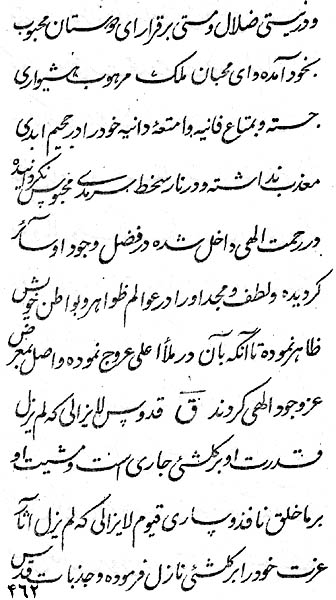 ودر نیستی ضلال ومستی برقرار ای دوستان محبوب
بخود آمده وای محبان ملک مرهوب هشیواری
جسته وبمتاع فانیه وامتعهٔ دانیه خود را در جحیم ابدی
معذب نداشته ودر نار سخط سرمدی محبوس نگردانیده
در رحمت الهی داخل شده در فضل وجود او سائر
گردیده ولطف ومجد او را در عوالم ظواهر وبواطن خویش
ظاهر نموده تا آنکه بآن در ملأ اعلی عروج نموده واصل بمعارض
عز وجود الهی گردند ق قدوس لایزالی که لم یزل
قدرت او بر کلشئی جاری است ومشیت او
بر ما خلق نافذ وساری قیوم لایزالی که لم یزل آثار
عزت خود را بر کلشئی نازل فرموده وجذبات قدس
۴۶۲